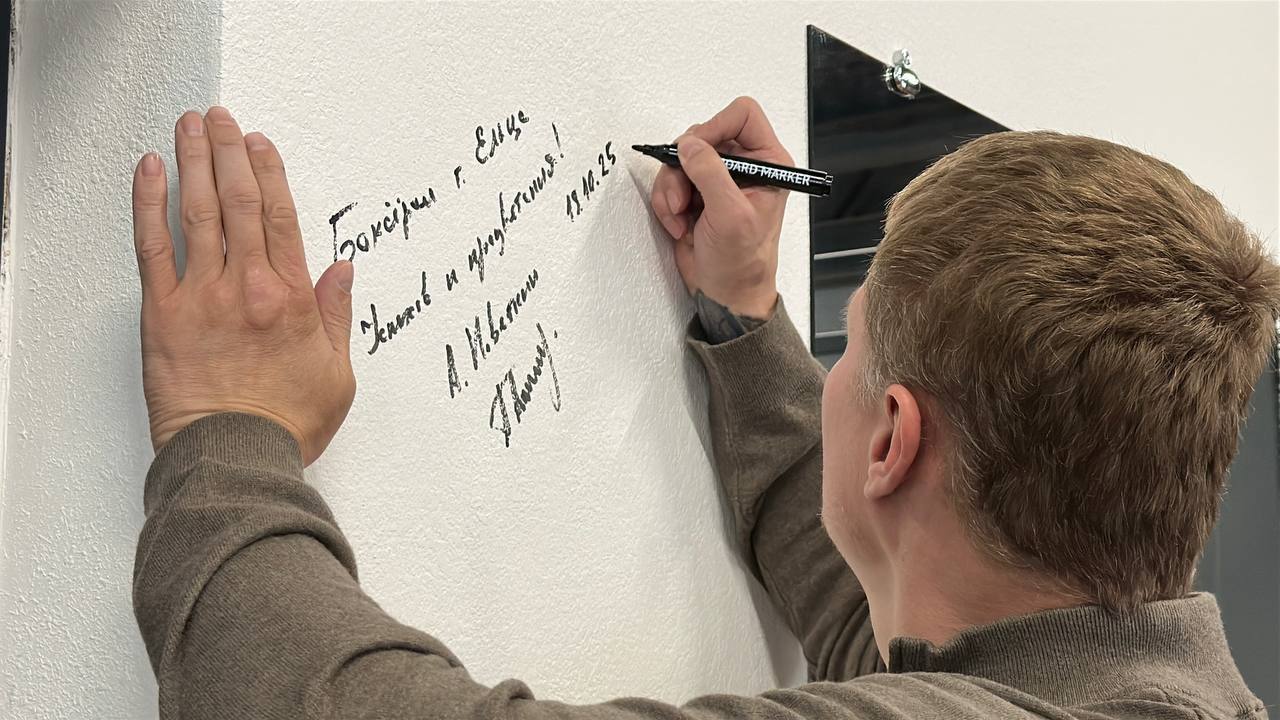 Боксёрам г. Ельце
Успехов и процветания!
19.10.25
А. И.
DARD MARKER